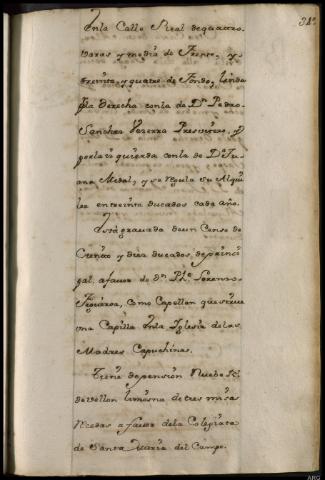 38
Enla Calle Real dequattro
varas y media de Frente, y
treinta, y quatro de Fondo, linda
pla derecha conla de Dn Pedro
Sanchez Vezerra Presvitero, y
porla izquierda conla de Da Jua
na Medal, y se regula su Alqui
ler entreinta ducados cada año.
Està gravada deun Censo de
Ciento y diez ducados deprinci
pal, afavor de Dn Phe Lorenzo
Figueroa, como Capellan quesirve
una Capilla enla Iglesia delas
Madres Capuchinas.
Tiene depension Nuebe Rs
de vellon limosna de tres misas
Rezadas afavor dela Colegiata
de Santa Maria del Campo.
ARG